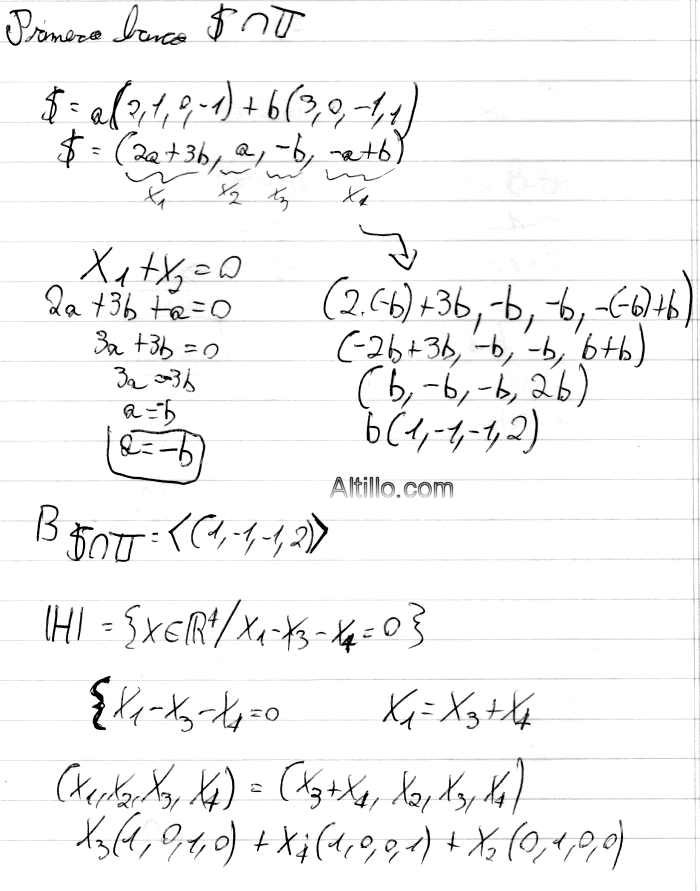 Primero busco $ ∩ π
$ = a(2,1,0,-1) + b(3,0,-1,1)
$ = (2a+3b, a, -b, -a+b)
x1 x2 x3 x4
x1+x2=0
2a+3b+a=0
3a+3b=0
3a=-3b
a=-b
a=-b
(2.(-b)+3b, -b, -b, -(-b)+b)
(-2b+3b, -b, -b, b+b)
(b, -b, -b, 2b)
b(1,-1,-1,2)
Altillo.com
B $∩π = <(1,-1,-1,2)>
|H| = {x∈ℝ⁴/x1-x3-x4=0}
{x1-x3-x4=0 x1=x3+x4
(x1,x2,x3,x4) = (x3+x4, x2, x3, x4)
x3(1,0,1,0) + x4(1,0,0,1) + x2(0,1,0,0)